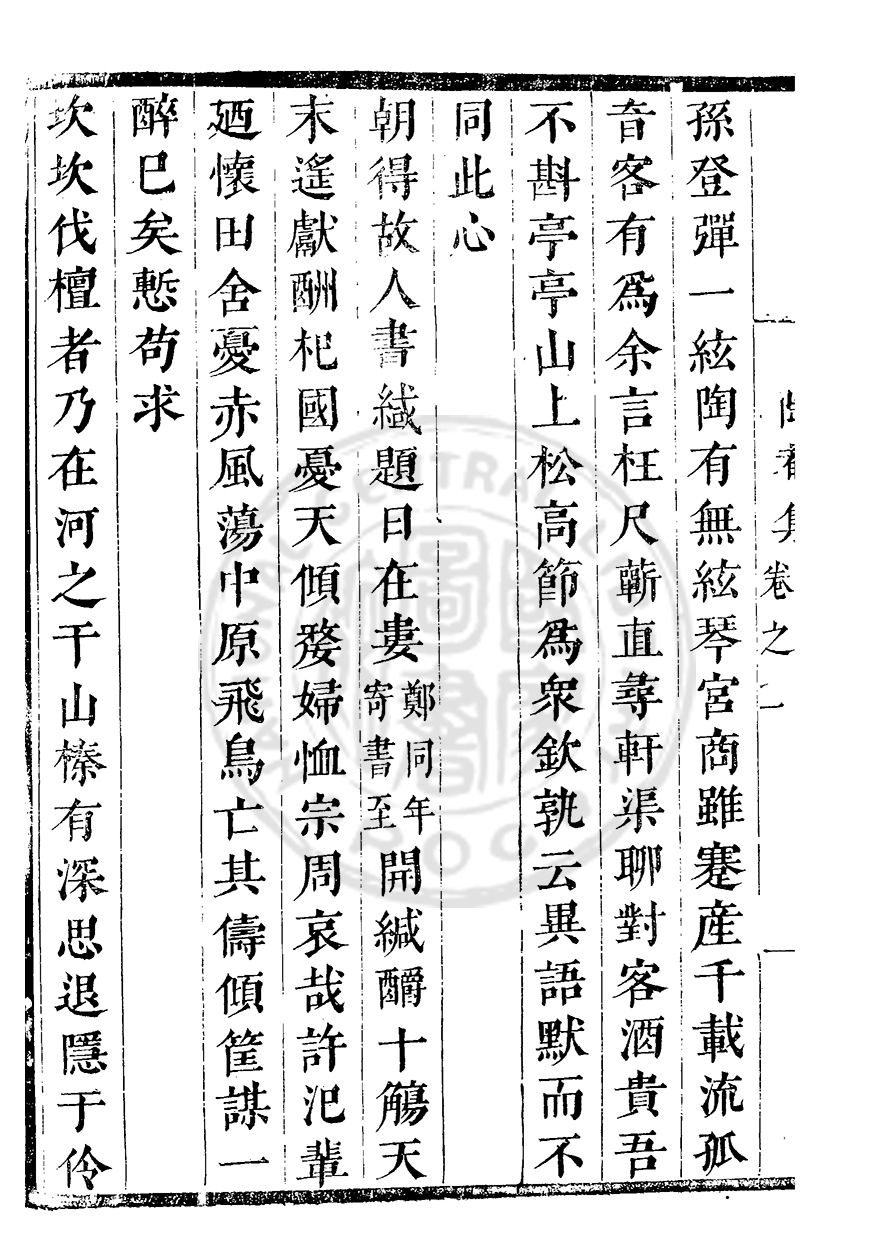 集卷之二
孫登彈一絃陶有無絃琴宮商雖蹇産千載流孤
音客有爲余言枉尺蘄直尋軒渠聊對客酒貴吾
不斟亭亭山上松高節爲衆欽孰云異語默而不
同此心
朝得故人書緘題日在婁鄭同年寄書至開緘釂十觴天
末遙獻酬杞國憂天傾嫠婦恤宗周哀哉許汜輩
廼懷田舍憂赤風蕩中原飛鳥亡其儔傾筐謀一
醉巳矣慙苟求
坎坎伐檀者乃在河之干山榛有深思退隱于伶